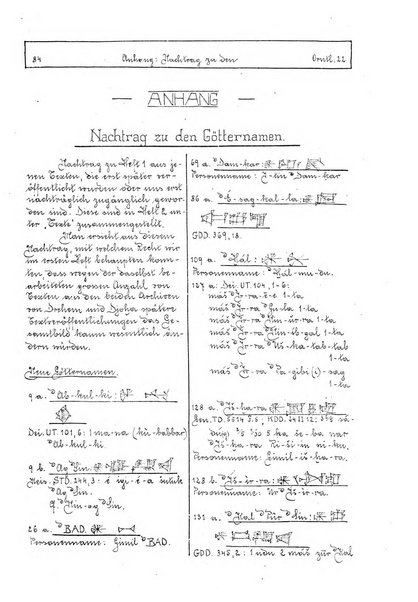 84 Anhang: Nachtrag zu den Orntl. 22
— ANHANG —
Nachtrag zu den Götternamen.
Nachtrag zu Heft 1 aus je-
nen Texten, die erst später ver-
öffentlicht wurden oder uns erst
nachträglich zugänglich gewor-
den sind. Diese sind in Heft 2 un-
ter „Texte" zusammengestellt.
Man ersieht aus diesem
Nachtrag, mit welchem Recht wir
im ersten Heft behaupten konn-
ten, dass wegen der daselbst be-
arbeiteten grosen Anzahl von
Texten aus den beiden Archiven
von Drehem und Djoha spätere
Textveröffentlichungen das Ge-
samtbild kaum wesentlich än-
dern würden.
Neue Götternamen.
9 a. ᴰAb-kul-ki:
Dei. UT. 101, 6: 1 ma-na (kù-babbar)
ᴰAb-kul-ki.
9 b. ᴰAg ᴰSin.
ᴰSin.
26 a. ᴰBAD.
Personenname: Gimil ᴰBAD.
69 a. ᴰDam-kar:
Personenname: ᴰDam-kar
86 a. sag-kal-la:
GDD. 369, 18.
109 a. ᴰHál:
Personenname: ᴰHál-mu-du.
127 a. Dei. UT. 104, 1-6:
máš 1-ta
máš 1-ta
máš 1-ta
máš gal 1-ta
máš kab-tab
1-ta
máš sag
1-ta
128 a. ᴰIš-ha-ra:
Personenname: Gimil-iš-ha-ra.
128 b. ᴰIš-ir.
Personenname: Ur ᴰIš-ir.
131 a. ᴰKal ᴰSin:
GDD. 345, 2: 1 udu 2 máš zur ᴰKal